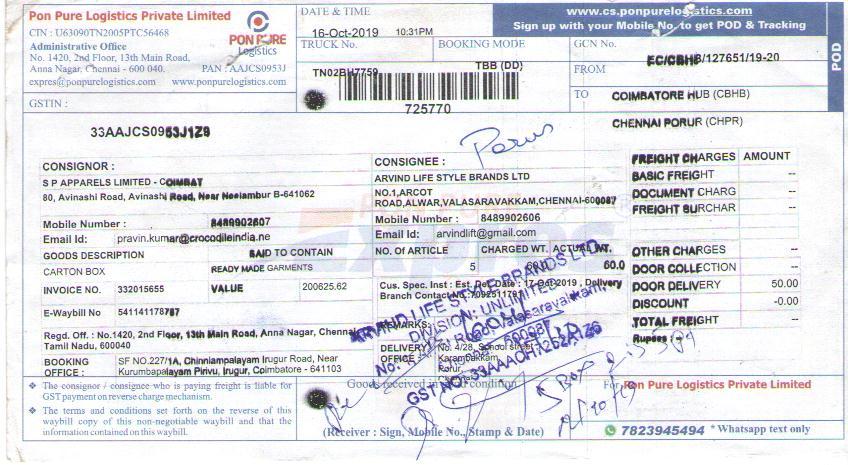 Pon Pure Logistics Private Limited
CIN : U63090TN2005PTC56468
Administrative Office
No. 1420, 2nd Floor, 13th Main Road,
Anna Nagar, Chennai - 600 040. PAN : AAJCS0953J
expres@ponpurelogistics.com www.ponpurelogistics.com
PON PURE
Logistics
DATE & TIME
16-Oct-2019 10:31PM
TRUCK No. BOOKING MODE
TN02BH7759 TBB (DD)
725770
www.cs.ponpurelogistics.com
Sign up with your Mobile No. to get POD & Tracking
POD
GCN No.
EC/CBHB/127651/19-20
FROM
COIMBATORE HUB (CBHB)
TO
CHENNAI PORUR (CHPR)
GSTIN :
33AAJCS0953J1Z9
Porur
CONSIGNOR :
S P APPARELS LIMITED - COIMBAT
80, Avinashi Road, Avinashi Road, Near Neelambur B-641062
Mobile Number : 8489902607
Email Id: pravin.kumar@crocodileindia.ne
CONSIGNEE :
ARVIND LIFE STYLE BRANDS LTD
NO.1,ARCOT
ROAD,ALWAR,VALASARAVAKKAM,CHENNAI-600087
Mobile Number : 8489902606
Email Id: arvindlift@gmail.com
GOODS DESCRIPTION SAID TO CONTAIN
CARTON BOX READY MADE GARMENTS
INVOICE NO. 332015655 VALUE 200625.62
E-Waybill No 541141178787
NO. Of ARTICLE CHARGED WT. ACTUAL WT.
5 60.0
Cus. Spec. Inst : Est. Del. Date : 17-Oct-2019 , Delivery
Branch Contact No:
REMARKS:
DELIVERY OFFICE : No. 4/28, School street
Karambakkam,
Porur,
Regd. Off. : No.1420, 2nd Floor, 13th Main Road, Anna Nagar, Chennai
Tamil Nadu, 600040
BOOKING OFFICE : SF NO.227/1A, Chinniampalayam Irugur Road, Near
Kurumbapalayam Pirivu, Irugur, Coimbatore - 641103
FREIGHT CHARGES AMOUNT
BASIC FREIGHT --
DOCUMENT CHARG --
FREIGHT SURCHAR --
OTHER CHARGES --
DOOR COLLECTION --
DOOR DELIVERY 50.00
DISCOUNT -0.00
TOTAL FREIGHT --
Rupees : --
ARVIND LIFE STYLE BRANDS LTD.
DIVISION: UNLIMITED
Valasaravakkam,
GST NO: 
The consignor / consignee who is paying freight is liable for
GST payment on reverse charge mechanism.
The terms and conditions set forth on the reverse of this
waybill copy of this non-negotiable waybill and that the
information contained on this waybill.
Goods received in good condition
(Receiver : Sign, Mobile No., Stamp & Date)
5 Box
For Pon Pure Logistics Private Limited
7823945494 * Whatsapp text only